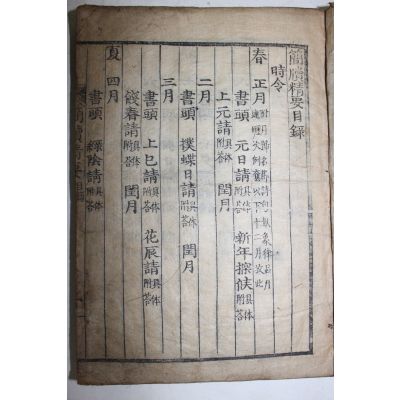 簡牘精要目錄
時令
春 正月 十二月放此
書頭 元日請 具体附答 新年探候 具体附答
上元請 具体附答
二月
書頭 撲蝶日請 具体附答 閏月
三月
書頭 上巳請 具体附答 花辰請 具体附答
餞春請 具体附答 閏月
夏 四月
書頭 綠陰請 具体附答